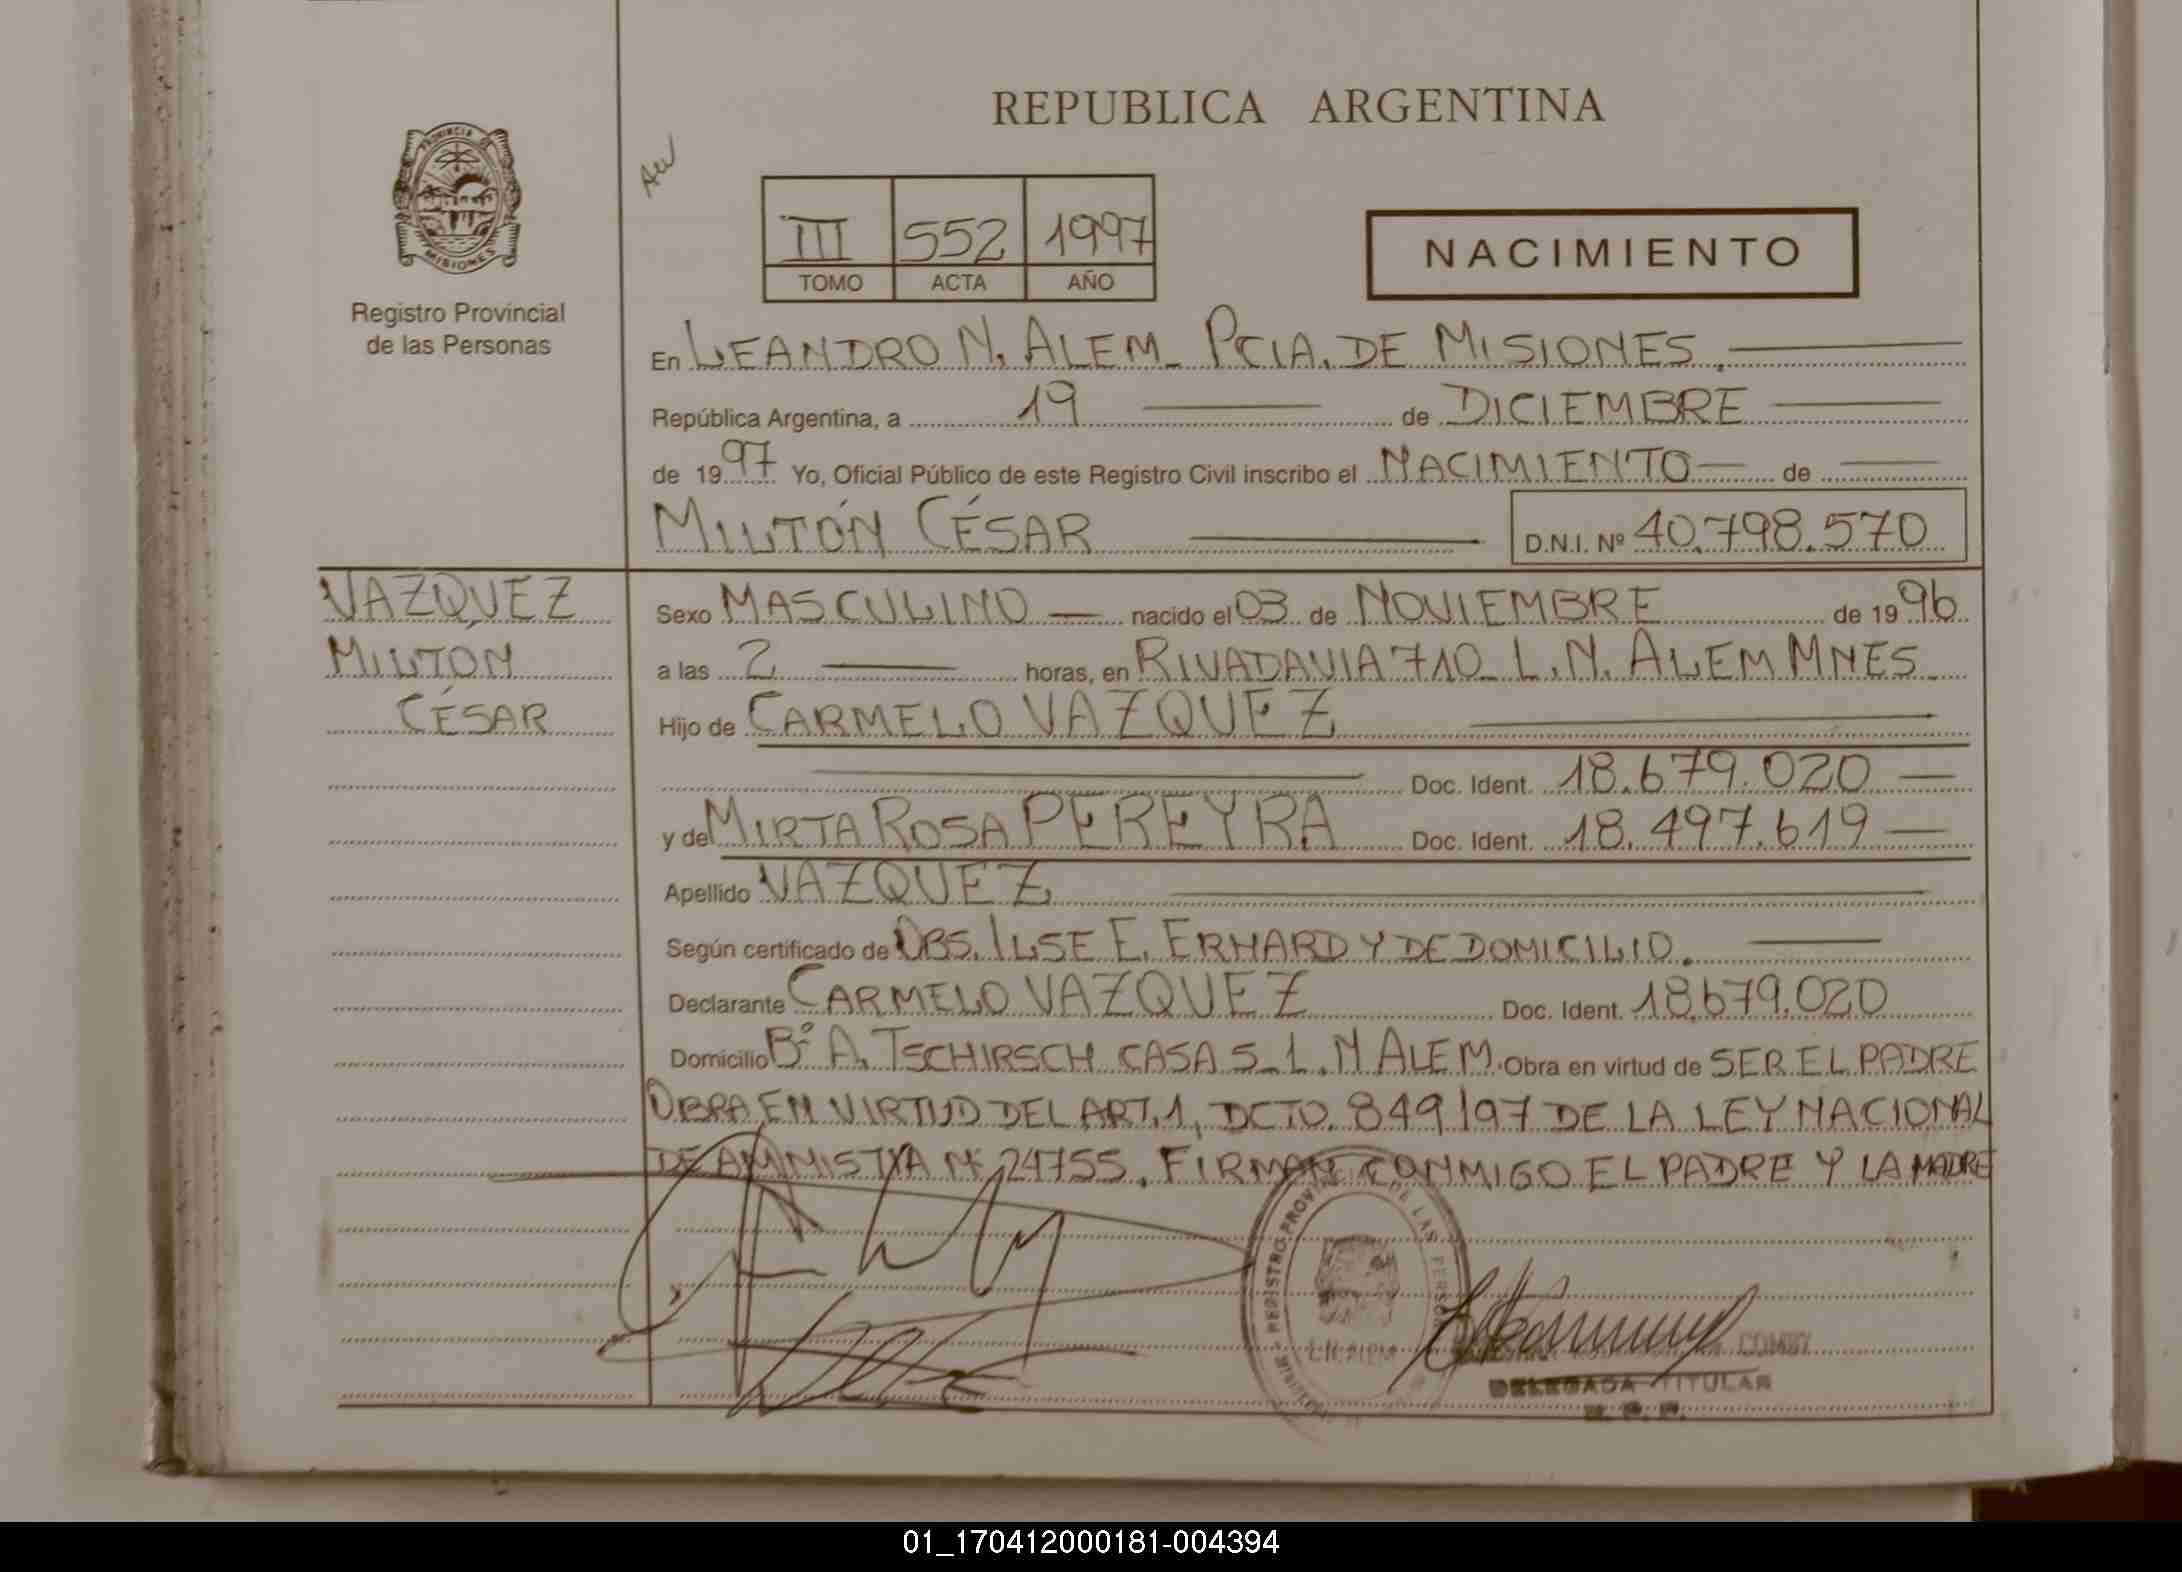 REPUBLICA ARGENTINA
PROVINCIA
MISIONES
Registro Provincial
de las Personas
III 552 1997
TOMO ACTA AÑO
NACIMIENTO
En LEANDRO N. ALEM_ PCIA. DE MISIONES.
República Argentina, a 19 de DICIEMBRE
de 1997 Yo, Oficial Público de este Registro Civil inscribo el NACIMIENTO de
MILTÓN CÉSAR D.N.I. Nº 40.798.570
VAZQUEZ
MILTÓN
CÉSAR
Sexo MASCULINO nacido el 03 de NOVIEMBRE de 1996
a las 2 horas, en RIVADAVIA 710_ L.N. ALEM MNES_
Hijo de CARMELO VAZQUEZ
Doc. Ident. 18.679.020
y de MIRTA ROSA PEREYRA Doc. Ident. 18.497.619
Apellido VAZQUEZ
Según certificado de OBS. ILSE E. ERHARD Y DE DOMICILIO.
Declarante CARMELO VAZQUEZ Doc. Ident. 18.679.020
Domicilio Bº A. TSCHIRSCH CASA 5_ L.N ALEM. Obra en virtud de SER EL PADRE
OBRA EN VIRTUD DEL ART. 1, DCTO. 849/97 DE LA LEY NACIONAL
DE AMNISTIA Nº 24755. FIRMAN CONMIGO EL PADRE Y LA MADRE
REGISTRO PROVIN DE LAS PERSON
DELEGADA TITULAR
R. P. P.
01_170412000181-004394